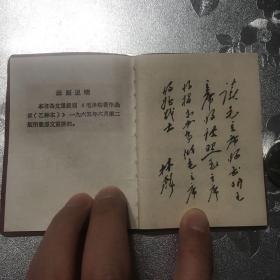 出版说明
本书各文是根据《毛泽东著作选
读(乙种本)》一九六五年六月第二
版所载原文重排的。
读毛主席的书,听毛
主席的话,照毛主席
的指示办事,做毛主席
的好战士。
林彪